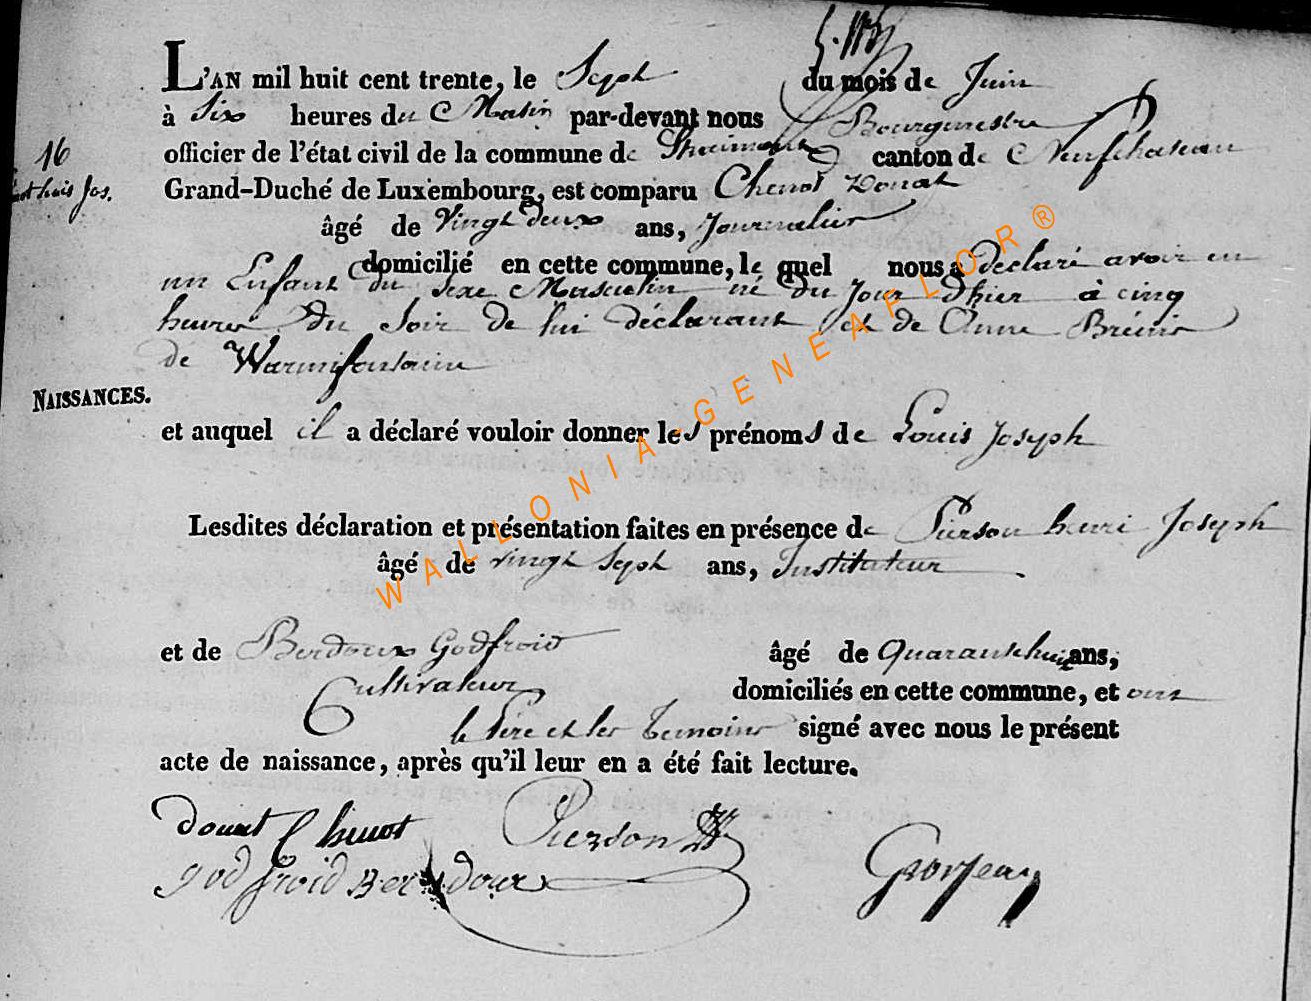 L'AN mil huit cent trente, le Sept du mois de Juin
à Six heures du Matin par-devant nous Bourgmestre
16
officier de l'état civil de la commune de canton de Neufchateau
Jos.
Grand-Duché de Luxembourg, est comparu Chenot Donat
âgé de Vingt deux ans, Journalier
domicilié en cette commune, le quel nous a declaré avoir eu
un Enfant du sexe Masculin né du Jour d'hier à cinq
heures Du Soir de lui déclarant et de Anne
de Warmifontaine
NAISSANCES.
et auquel il a déclaré vouloir donner les prénoms de Louis Joseph
Lesdites déclaration et présentation faites en présence de Pierson henri Joseph
âgé de vingt Sept ans, Instituteur
et de Berdoux Godfroid âgé de Quarante huit ans,
Cultivateur domiciliés en cette commune, et ont
le Père et les Temoins signé avec nous le présent
acte de naissance, après qu'il leur en a été fait lecture.
donat Chenot Pierson
godfroid Berdoux Grosjean
WALLONIA-GENEAFLOR®